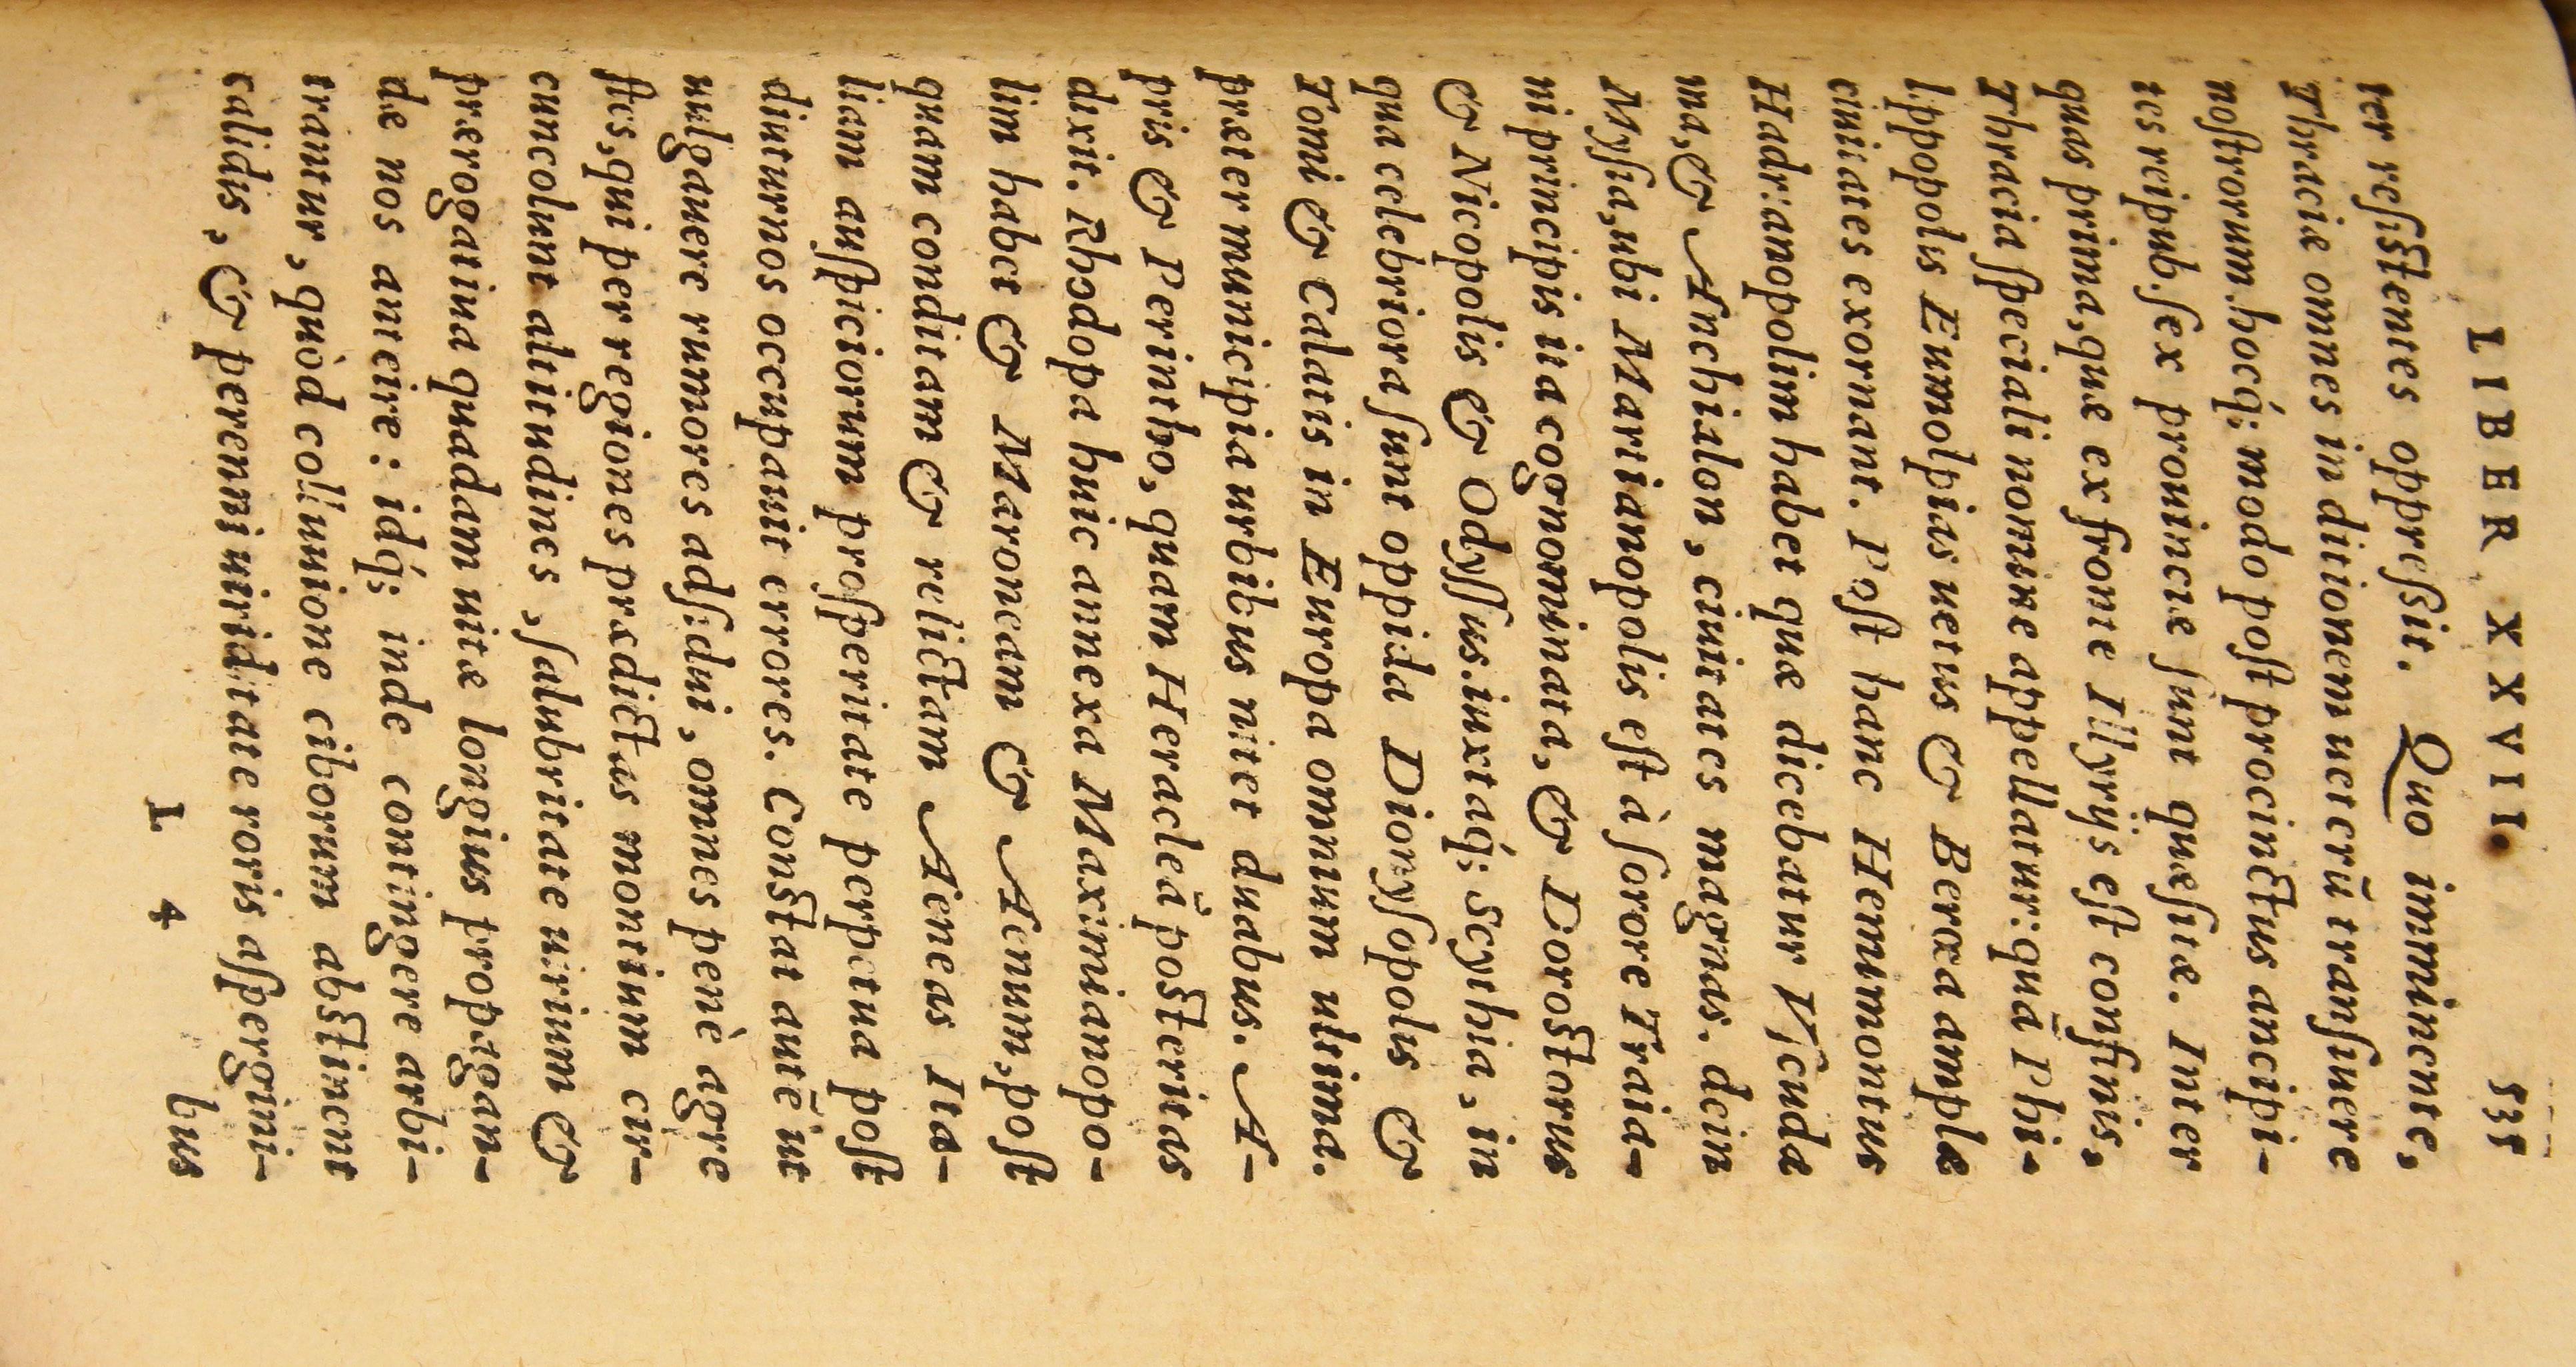 LIBER XXVII. 535
ter resistentes oppressit. Quo imminente,
Thraciæ omnes in ditionem uetcrū transiuere
nostrorum. hocq́; modo post procinctus ancipi-
tes reipub. sex prouinciæ sunt quæsitæ. Inter
quas prima, quæ ex fronte Illyrijs est confinis,
Thracia speciali nomine appellatur: quā Phi-
lippopolis Eumolpias uetus & Berœa amplæ
ciuitates exornant. Post hanc Hemimontus
Hadrianopolim habet quæ dicebatur Vscuda
ma, & Anchialon, ciuitates magnas. dein
Mysia, ubi Martianopolis est à sorore Traia-
ni principis ita cognominata, & Dorostorus
& Nicopolis & Odyssus. iuxtaq́; Scythia, in
qua celebriora sunt oppida Dionysopolis &
Tomi & Calatis in Europa omnium ultima.
præter municipia urbibus nitet duabus. A-
pris & Perintho, quam Heracleā posteritas
dixit. Rhodopa huic annexa Maximianopo-
lim habet & Maroneam & Aenum, post
quam conditam & relictam Aeneas Ita-
liam auspiciorum prosperitate perpetua post
diuturnos occupauit errores. Constat autē ut
uulgauere rumores adsidui, omnes penè agre
stes, qui per regiones prædictas montium cir-
cuncolunt altitudines, salubritate uirium &
prærogatiua quadam uitæ longius propagan-
dæ nos anteire: idq́; inde contingere arbi-
trantur, quòd colluuione ciborum abstinent
calidis, & perenni uiriditate roris asperginі-
L 4 bus